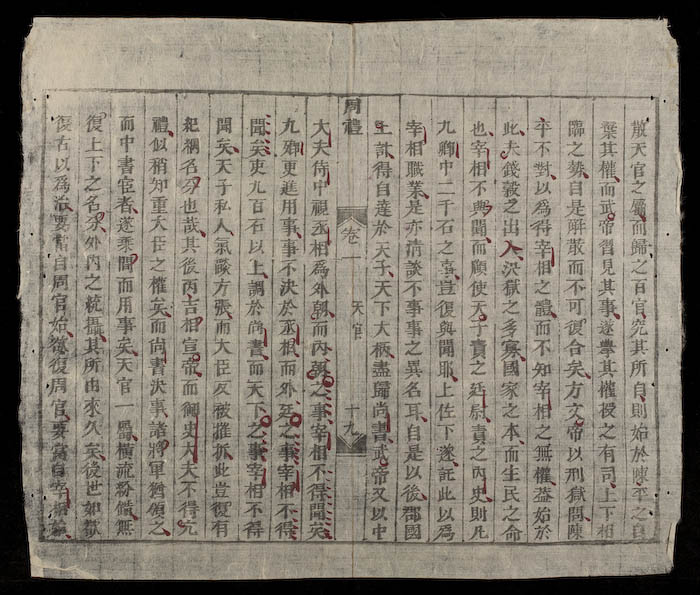 散天官之屬而歸之百官究其所自則始於陳平之自
棄其權而武帝習見其事遂舉其權授之有司上下相
臨之勢自是解散而不可復合矣方文帝以刑獄問陳
平不對以爲得宰相之體而不知宰相之無權葢始於
此夫錢穀之出入决獄之多寡國家之本而生民之命
也宰相不與聞而顧使天子責之廷尉責之內史則凡
九卿中二千石之事豈復與聞耶上佐下遂託此以爲
宰相職業是亦清談不事事之異名耳自是以後郡國
上計得自達於天子天下大柄盡歸尚書武帝又以中
周禮 卷一 天官 十九
大夫侍中視丞相爲外朝而內朝之事宰相不得聞矣
九卿更進用事事不决於丞相而外廷之事宰相不得
聞矣吏九百石以上調於尚書而天下之事宰相不得
聞矣天子私人氣燄方張而大臣反被摧折此豈復有
紀綱名分也哉其後丙吉相宣帝而御史大夫不得亢
禮似稍知重大臣之權矣而尚書决事諸將軍猶領之
而中書宦者遂乘間而用事矣天官 屬橫流粉錯無
復上下之名分外內之統攝其所由來久矣後世如欲
復古以爲治要當自周官始欲復周官要當自宰相